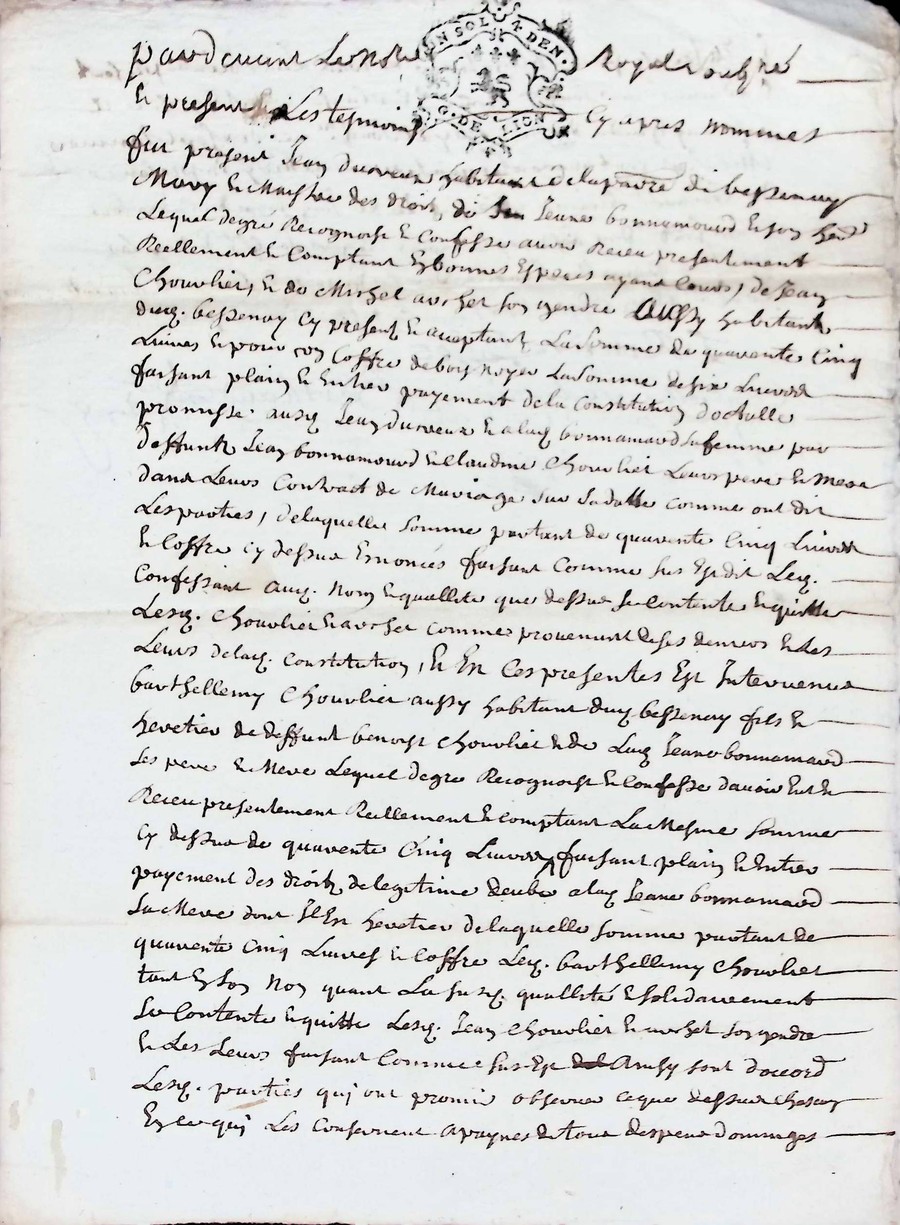 Pardevant Le Notre Royal soubzné
UN SOL 4 DEN.
G. DE LION
Et present Les tesmoins Cy apres nommes
fut present Jean dusveux habitant de la parre de bessenay
Mary Et Maistre des droits de Jeane bonnamourd Et son herr
Lequel degré Recognoist Et Confesse avoir Receu presentement
Reellement Et Comptant En bonnes Especes ayant Cours, de Jean
Chouvlier, Et de Michel archet son gendre Aussy habitant
dud. bessenay Cy present Et acceptant, La Somme de quarente Cinq
Livres Et pour un Coffre de bois noyer La Somme de six Livres
faisant plain Et Entier payement de la Constitution dotalle
promisse ausd. Jean dusveux Et a lad. bonnamourd sa femme par
deffunts Jean bonnamourd Et Claudine Chouvlier Leurs pere Et Mere
dans Leurs Contract de Mariage sur sa dotte comme ont dit
Les parties, de laquelle somme partant de quarente Cinq Livres
Et Coffre Cy dessus Enoncés faisant Comme sus Est dit Led.
Confessant aud. Nom Et quallite que dessus se Contente Et quitte
Lesd. Chouvlier Et archet comme provenant de ses deniers Et des
Leurs de lad. constitution, Et En Ces presentes Est Intervenus
barthellemy Chouvlier aussy habitant dud. bessenay fils Et
heretier de deffunt benoist Chouvlier Et de Lad. Jeane bonnamourd
Ses pere Et Mere Lequel degre Recognoist Et Confesse davoir Eut Et
Receu presentement Reellement Et Comptant La Mesme Somme
Cy dessus de quarente Cinq Livres faisant plain Et Entier
payement des droits de legitime deube a lad. Jeane bonnamourd
Sa Mere dont Il Est heretier de laquelle somme partant de
quarente Cinq Livres Et Coffre Led. barthellemy Chouvlier
tant En son Nom quant La susd. quallité Et solidairement
Se Contente Et quitte Lesd. Jean Chouvlier Et archet son gendre
Et Les Leurs faisant Comme sus Est Ainsy sont d'accord
Lesd. parties qui ont promis observer ce que dessus chascun
En ce qui Les Consernent a paynes de tous despens dommages